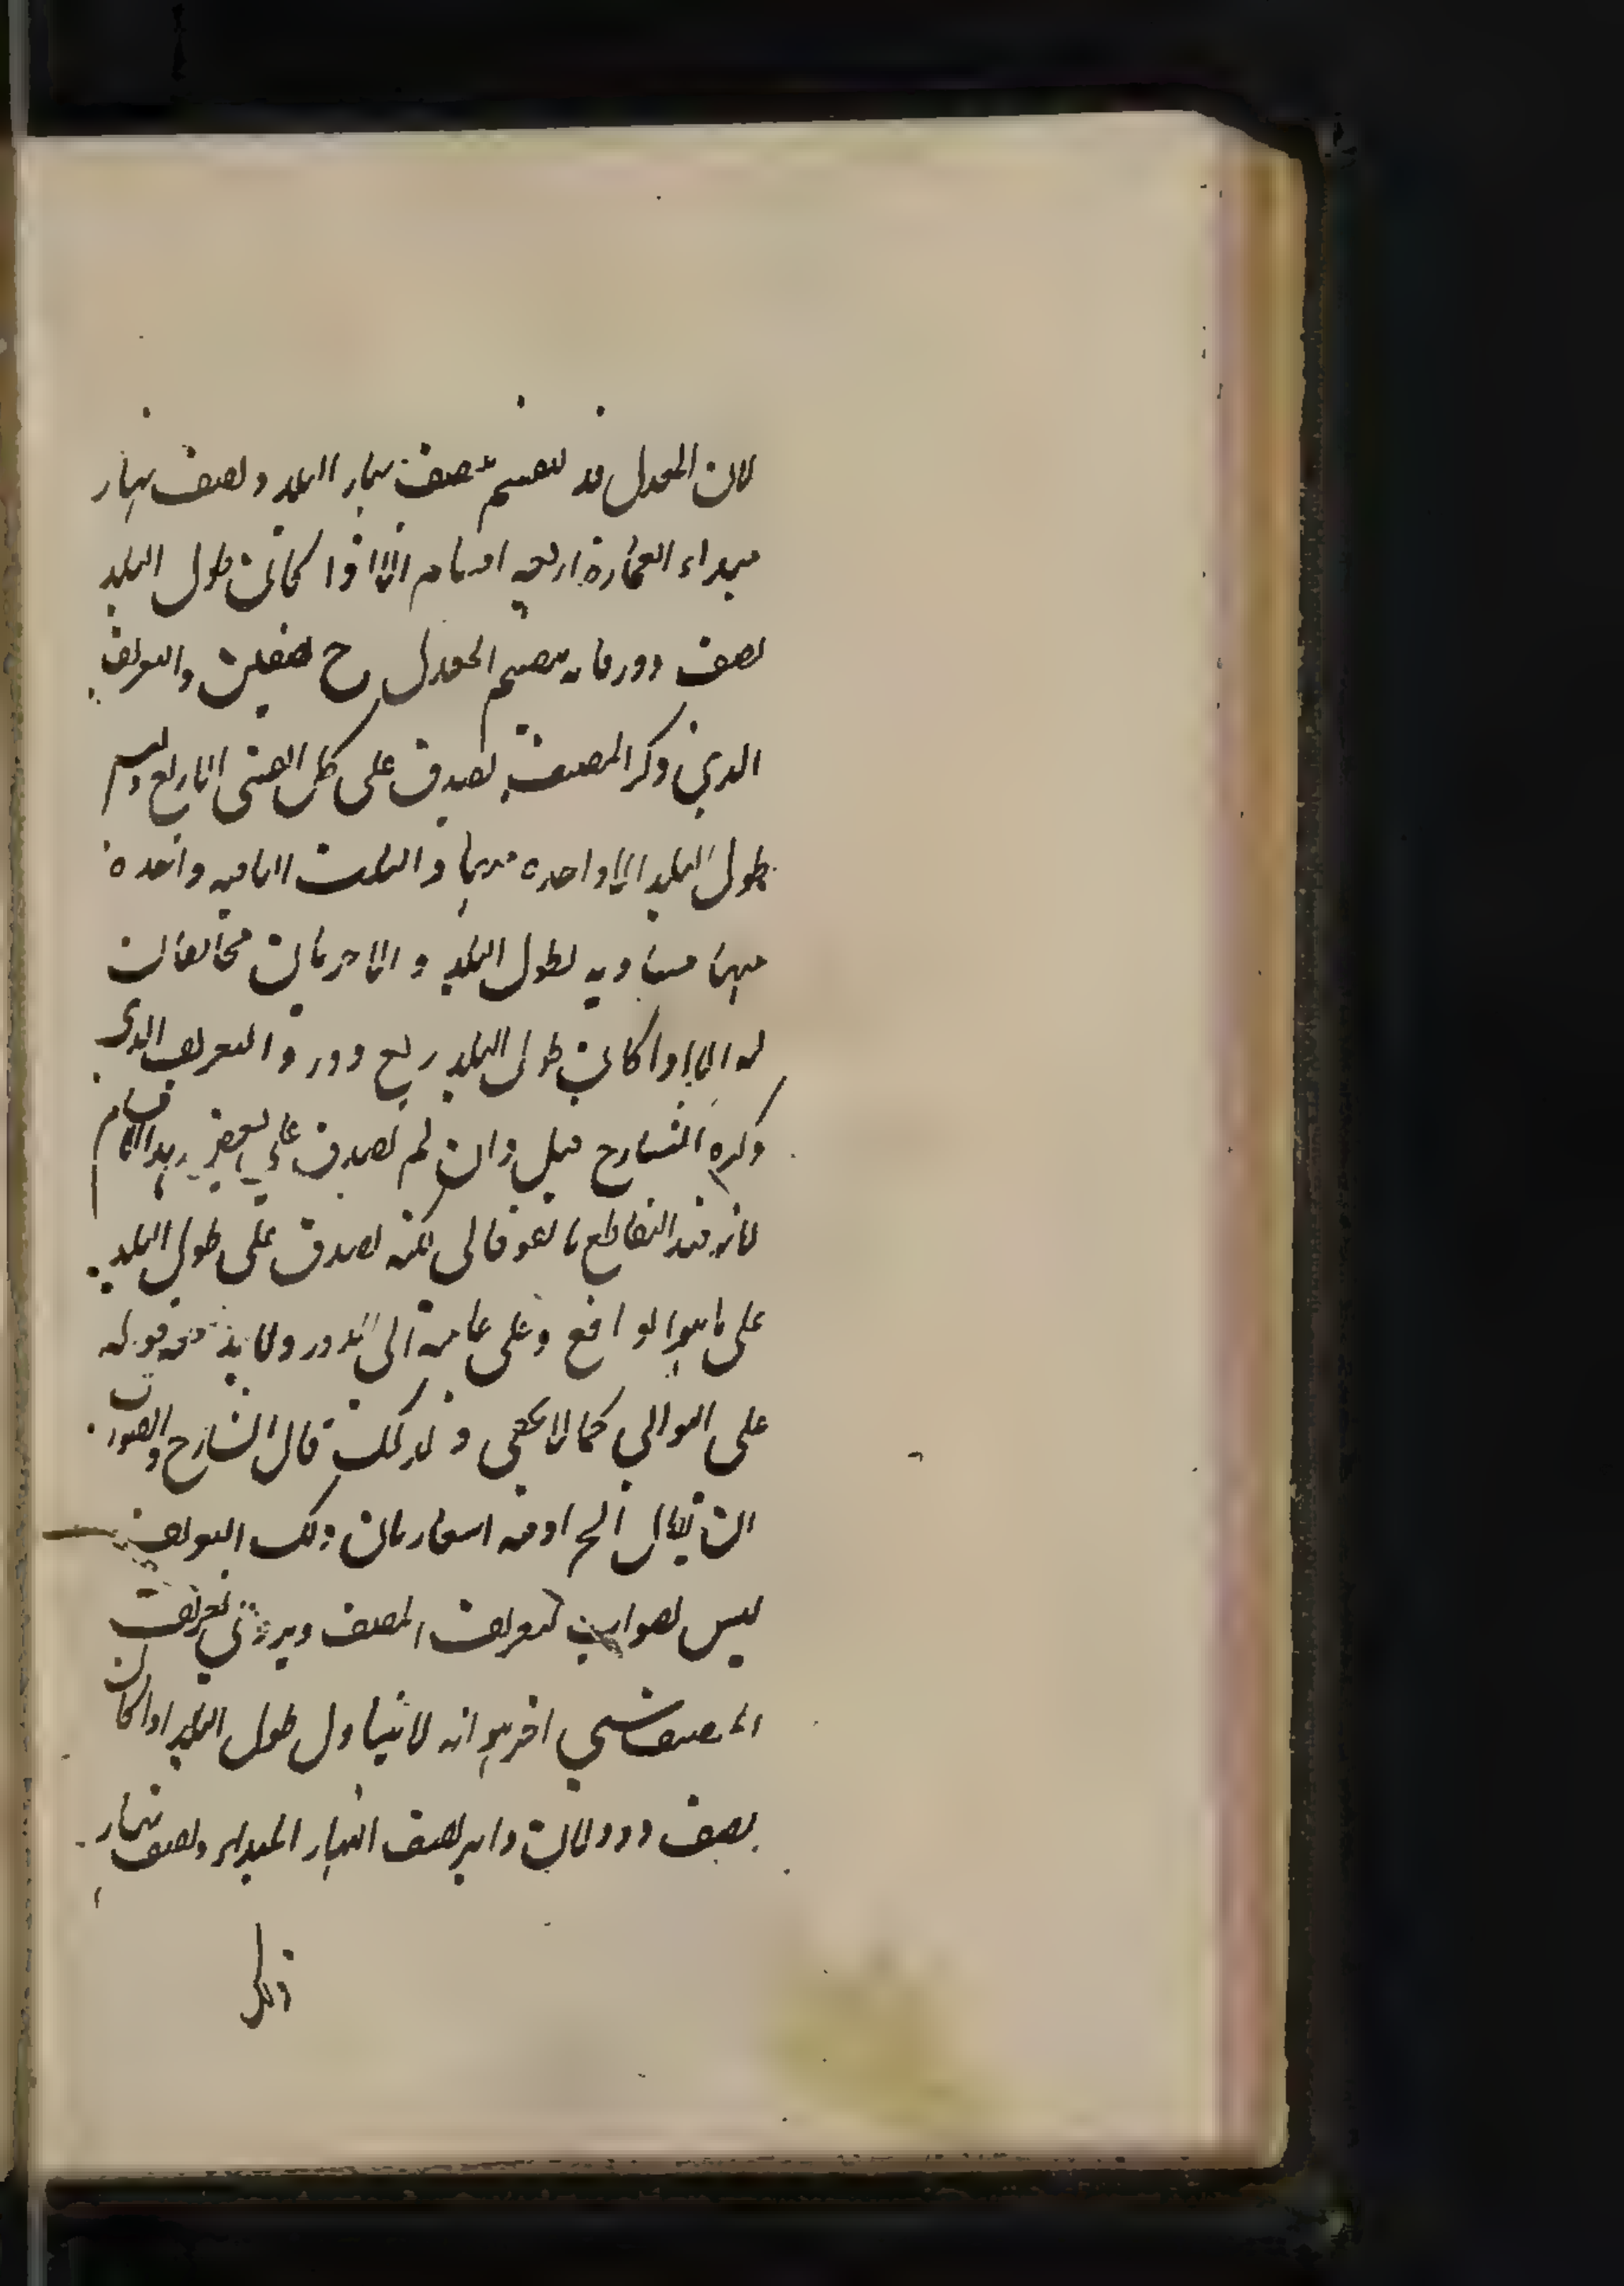 لان المعدل قد ينقسم بنصف نهار البلد ونصف نهار
مبداء العمارة اربعه اقسام الا اذا كان طول البلد
نصف دور فانه ينقسم المعدل ح بنصفين والتعريف
الذي ذكر المصنف يصدق على كل القسى الاربع وليس
طول البلد الا واحده منها والثلث الباقيه واحده
منها مساويه لطول البلد و الاخريان مخالفتان
له الا اذا كان طول البلد ربع دور والتعريف الذى
ذكره الشارح قبل وان لم يصدق على بعض هذه الاقسام
لانه قيد التقاطع بالفوقانى لكنه يصدق على طول البلد
على ما هو الواقع وعلى تمامه الى الدور ولا بد من قوله
على التوالي كما لا يخفى و لذلك قال الشارح والصواب
ان يقال الخ اذ فيه اشعار بان ذلك التعريف
ليس بصواب كتعريف المصنف ويرد على تعريف
المصنف شي اخر هو انه لا يتناول طول البلد اذا كان
نصف دور لان دايره نصف النهار المبداء ونصف نهار
ذلك